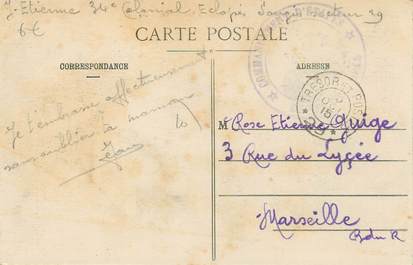 J. Etienne 34e Colonial, Eclopés, Secteur 29
6e
CARTE POSTALE
CORRESPONDANCE
ADRESSE
TRESOR ET POSTES
Je t'embrasse affectueusement
sans oublier ta maman
Jean
M Rose Etienne Quige
3 Rue du Lycée
Marseille
Bdu R